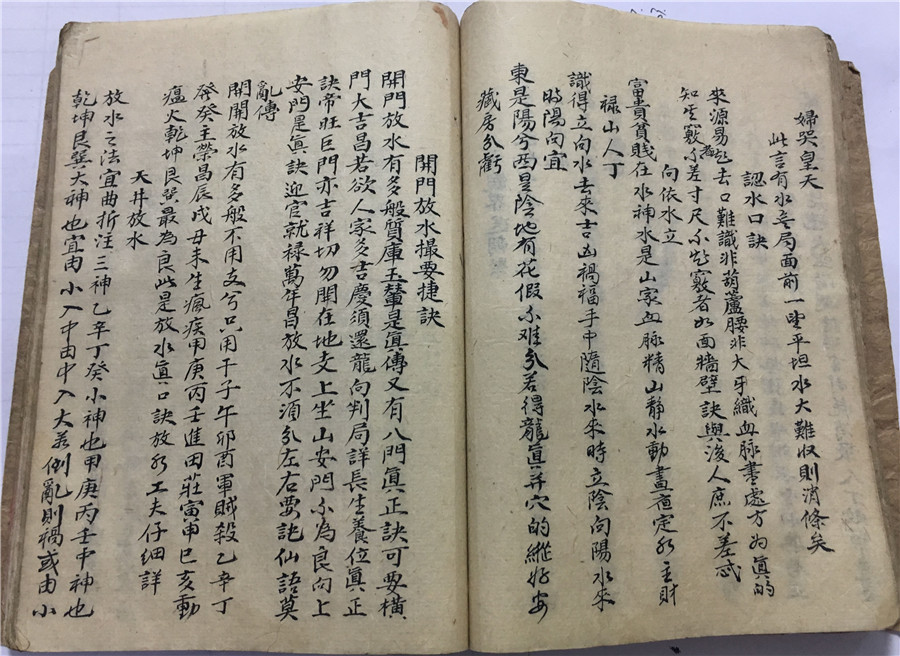 婦哭皇天
此言有水無局面前一望平坦水大難収則消條矣
認水口訣
來源易起去口難識非葫蘆腰非大牙織血脉盡處方为真的
知其竅不差寸尺不知竅者如面牆壁訣與後人庶不差忒
向依水立
富貴貧賤在水神水是山家血脉精山静水動晝夜定水主財
禄山人丁
識得立向水去來吉凶禍福手中隨陰水來時立陰向陽水來
時陽向宜
東是陽兮西是陰地有花假不难分若得龍真并穴的縱好安
藏房分虧
開門放水撮要捷訣
開門放水有多般質庫玉輦是真傳又有八門真正訣可要橫
門大吉昌若欲人家多吉慶須還龍向判局詳長生養位真正
訣帝旺巨門亦吉祥切勿開在地支上坐山安門不為良向上
安門是真訣迎官就禄萬年昌放水不須分左右要訣仙語莫
亂傳
開開放水有多般不用支兮只用干子午卯酉軍賊殺乙辛丁
癸癸主榮昌辰戌丑未生瘋疾甲庚丙壬進田莊寅申巳亥動
瘟火乾坤艮巽最為良此是放水真口訣放水工夫仔细詳
天井放水
放水之法宜曲折注三神乙辛丁癸小神也甲庚丙壬中神也
乾坤艮巽大神也宜由小入中由中入大若倒亂則禍或由小